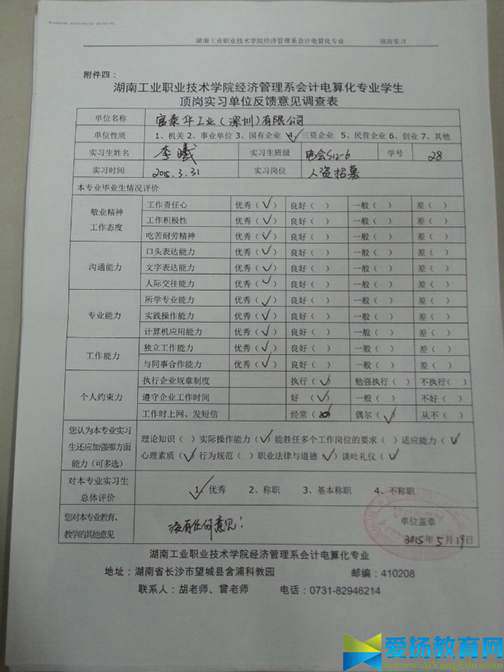 湖南工业职业技术学院经济管理系会计电算化专业 顶岗实习
附件四：
湖南工业职业技术学院经济管理系会计电算化专业学生
顶岗实习单位反馈意见调查表
单位名称 富泰华工业（深圳）有限公司
单位性质 1、机关 2、事业单位 3、国有企业 4、三资企业 5、民营企业 6、创业 7、其他
实习生姓名 李曦 实习生班级 电会S12-6 学号 28
实习时间 2015.3.31 实习岗位 人资招募
本专业毕业生情况评价
敬业精神
工作态度
工作责任心 优秀（✓） 良好（ ） 一般（ ） 差（ ）
工作积极性 优秀（✓） 良好（ ） 一般（ ） 差（ ）
吃苦耐劳精神 优秀（✓） 良好（ ） 一般（ ） 差（ ）
沟通能力
口头表达能力 优秀（✓） 良好（ ） 一般（ ） 差（ ）
文字表达能力 优秀（✓） 良好（ ） 一般（ ） 差（ ）
人际交往能力 优秀（✓） 良好（ ） 一般（ ） 差（ ）
专业能力
所学专业能力 优秀（✓） 良好（ ） 一般（ ） 差（ ）
实践操作能力 优秀（✓） 良好（ ） 一般（ ） 差（ ）
计算机应用能力 优秀（✓） 良好（ ） 一般（ ） 差（ ）
工作能力
独立工作能力 优秀（✓） 良好（ ） 一般（ ） 差（ ）
与同事合作能力 优秀（✓） 良好（ ） 一般（ ） 差（ ）
个人约束力
执行企业规章制度 执行（✓） 勉强执行（ ） 不执行（ ）
遵守企业工作时间 好（✓） 一般（ ） 不好（ ）
工作时上网、发短信 经常（ ） 偶尔（✓） 从不（ ）
您认为本专业实习
生还应加强哪方面
能力（可多选）
理论知识（ ）实际操作能力（✓）能胜任多个工作岗位的要求（ ）适应能力（✓
心理素质（✓）行为规范（ ）职业法律与道德（✓）谈吐礼仪（✓
对本专业实习生
总体评价
1、优秀 2、称职 3、基本称职 4、不称职
您对本专业教育、
教学的其他意见
没有任何意见！
单位盖章
2015年5月19日
湖南工业职业技术学院经济管理系会计电算化专业
地址：湖南省长沙市望城县含浦科教园 邮编：410208
联系人：胡老师、曾老师 电话：0731-82946214
爱扬教育网